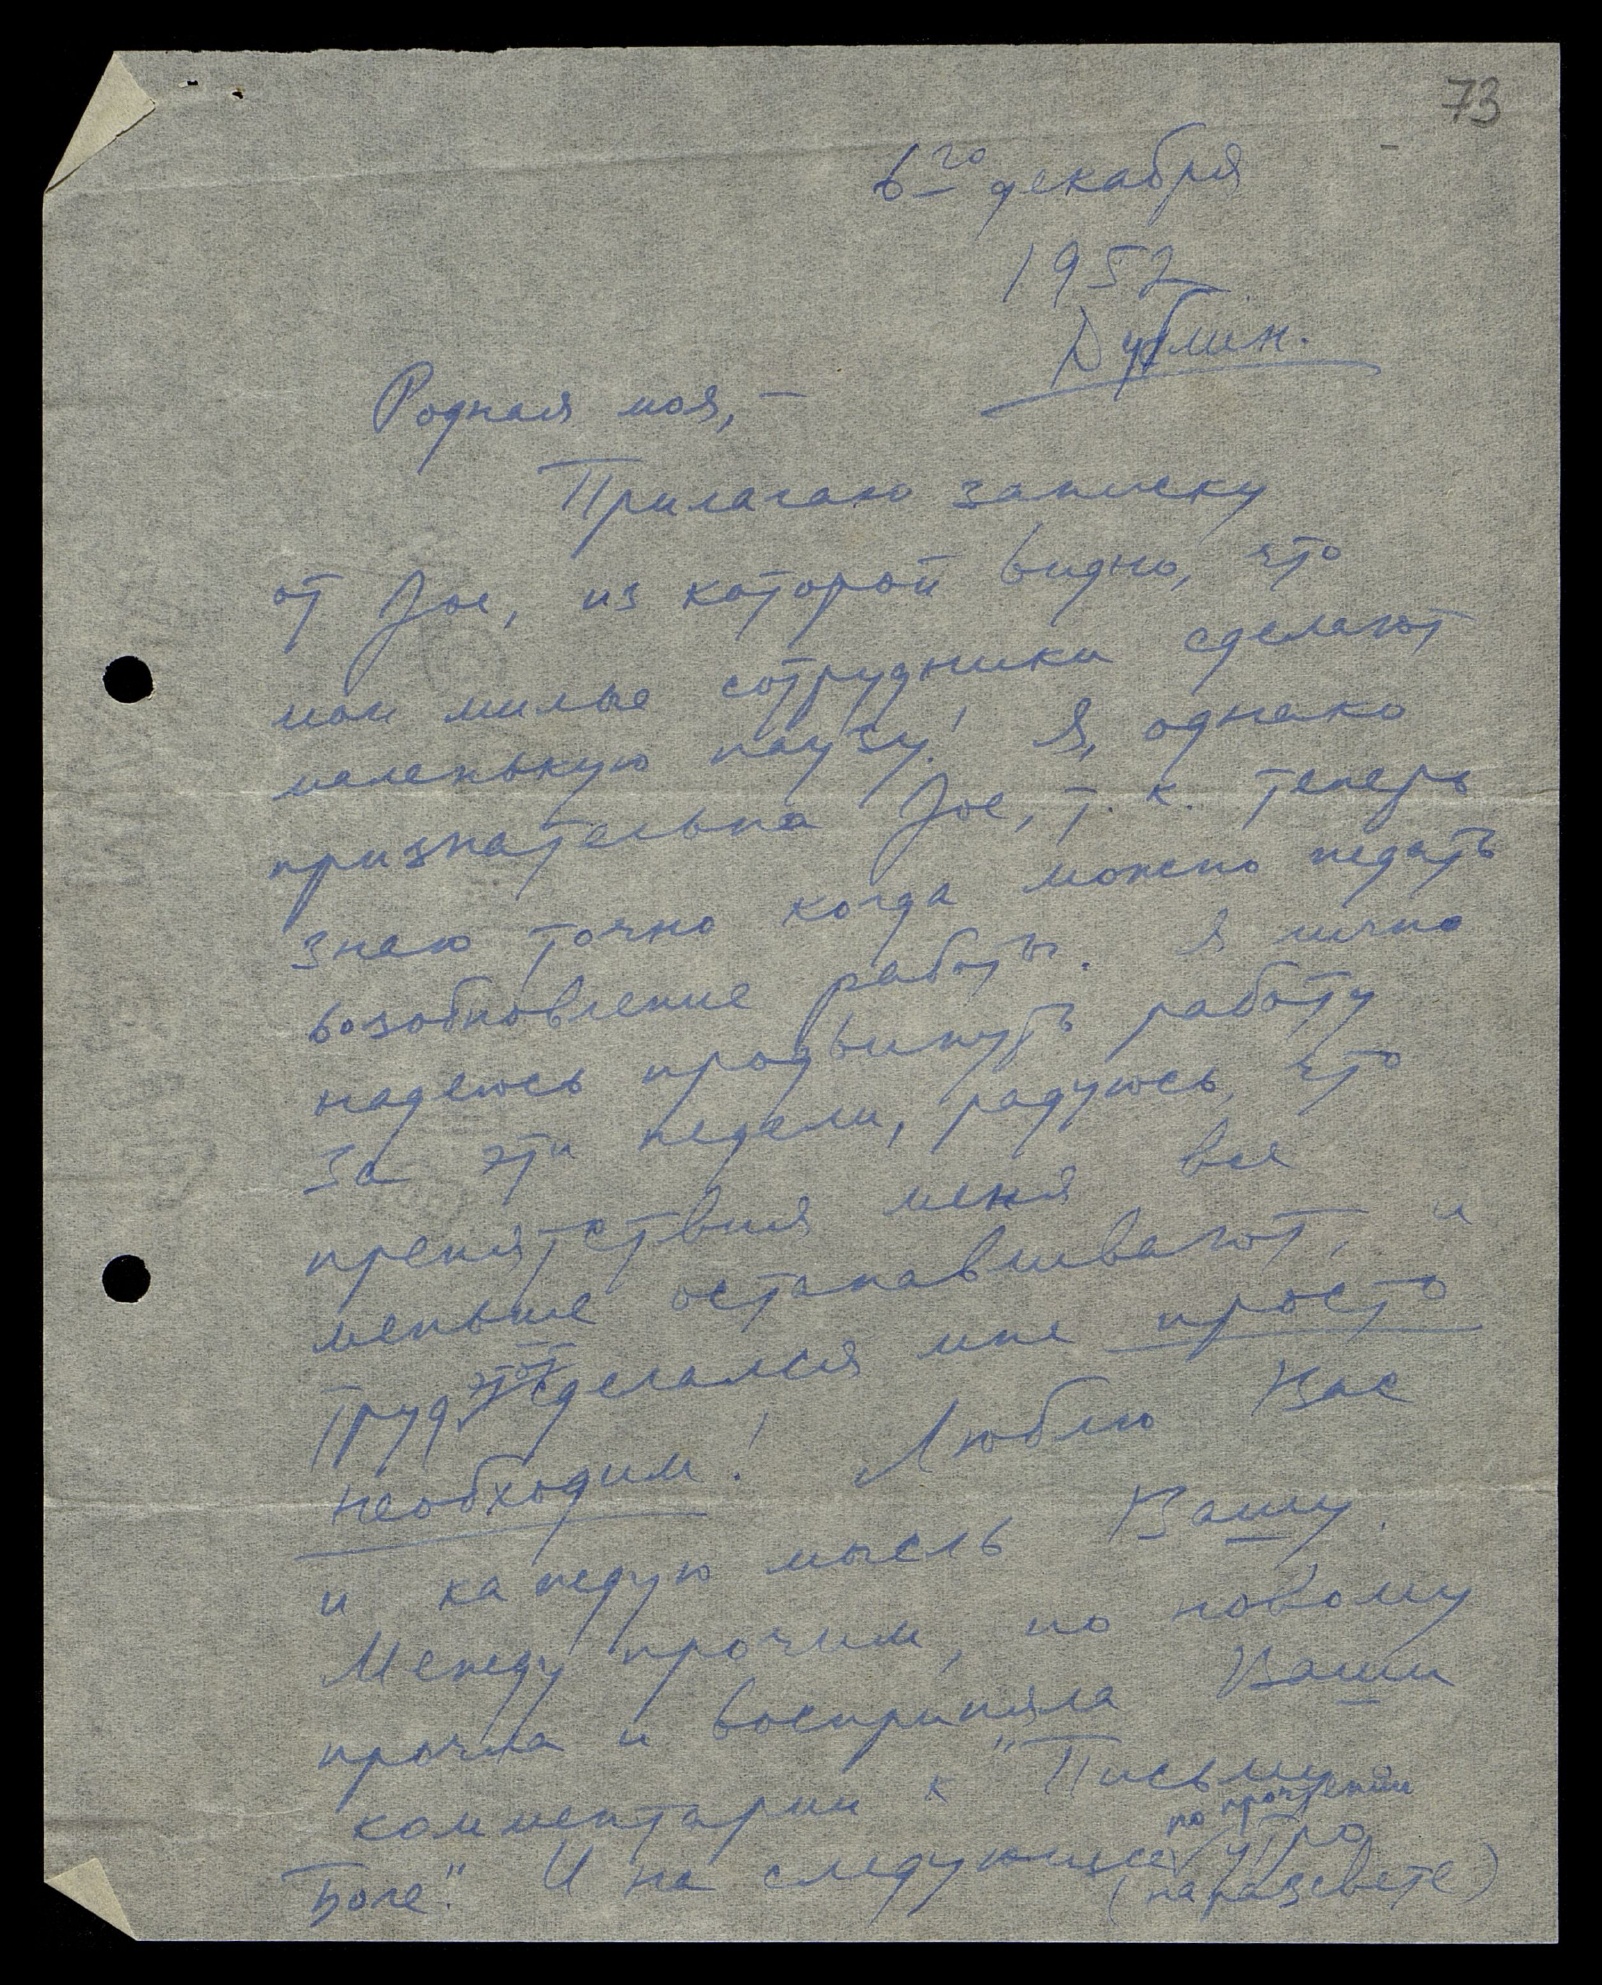 73
6го декабря
1952
Дублин.
Родная моя, —
Прилагаю записку
от Joe, из которой видно, что
мои милые сотрудники сделают
маленькую паузу! Я, однако
признательна Joe, т. к. теперь
знаю точно когда можно ждать
возобновление работы. Я лично
надеюсь продвинуть работу
за эти недели, радуюсь, что
препятствия меня все
меньше останавливают, и
труд этот сделался мне просто
необходим! Люблю Вас
и каждую мысль Вашу.
Между прочим, по новому
прочла и восприняла Ваши
комментарии к "Письму
Боге". И на следующее по прочтении утро
(на разсвете)